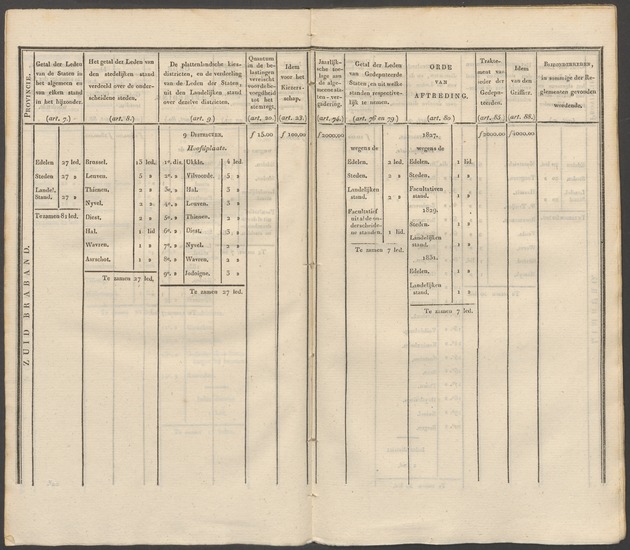 PROVINCIE.
ZUID BRABAND.
Getal der Leden
van de Staten in
het algemeen en
van elken stand
in het bijzonder.
(art. 7.)
Edelen 27 led.
Steden 27 »
Landel.
Stand. 27 »
Te zamen 81 led.
Het getal der Leden van
den stedelijken stand
verdeeld over de onder-
scheidene steden.
(art. 8.)
Brussel. 13 led.
Leuven. 5 »
Thienen. 2 »
Nyvel. 2 »
Diest. 2 »
Hal. 1 lid
Waveren. 1 »
Aarschot. 1 »
Te zamen 27 led.
De plattenlandsche kies-
districten, en de verdeeling
van de Leden der Staten,
uit den Landelijken stand
over dezelve districten.
(art. 9.)
9 Districten.
Hoofdplaats.
1e. dis. Ukkle. 4 led.
2e. » Vilvoorde. 3 »
3e. » Hal. 3 »
4e. » Leuven. 3 »
5e. » Thienen. 2 »
6e. » Diest. 3 »
7e. » Nyvel. 2 »
8e. » Waveren. 2 »
9e. » Jodoigne. 3 »
Te zamen 27 led.
Quantum
in de be-
lastingen
vereischt
voor de bie-
voegdheid
tot het
stemregt.
(art. 20.)
ƒ 15.00
Idem
voor het
Kiezer-
schap.
(art. 23.)
ƒ 100,00
Jaarlijk-
sche toe-
lage aan
de alge-
meene sta-
ten-ver-
gadering.
(art. 74.)
ƒ 2000.00
Getal der Leden
van Gedeputeerde
Staten, en uit welke
standen respective-
lijk te nemen.
(art. 76 en 79.)
wegens de
Edelen. 2 led.
Steden. 2 »
Landelijken
stand. 2 »
Facultatief
uit al de on-
derscheide-
ne standen. 1 lid.
Te zamen 7 led.
ORDE
VAN
AFTREDING.
(art. 80.)
1827.
wegens de
Edelen. 1 lid.
Steden. 1 »
Facultatieven
stand. 1 »
1829.
Steden. 1 »
Landelijken
stand. 1 »
1831.
Edelen. 1 »
Landelijken
stand. 1 »
Te zamen 7 led.
Trakte-
ment van
ieder der
Gedepu-
teerden.
(art. 85.)
ƒ 2000.00
Idem
van den
Griffier.
(art. 88.)
ƒ 4000.00
Bijzonderheden,
in sommige der Re-
glementen gevonden
wordende.